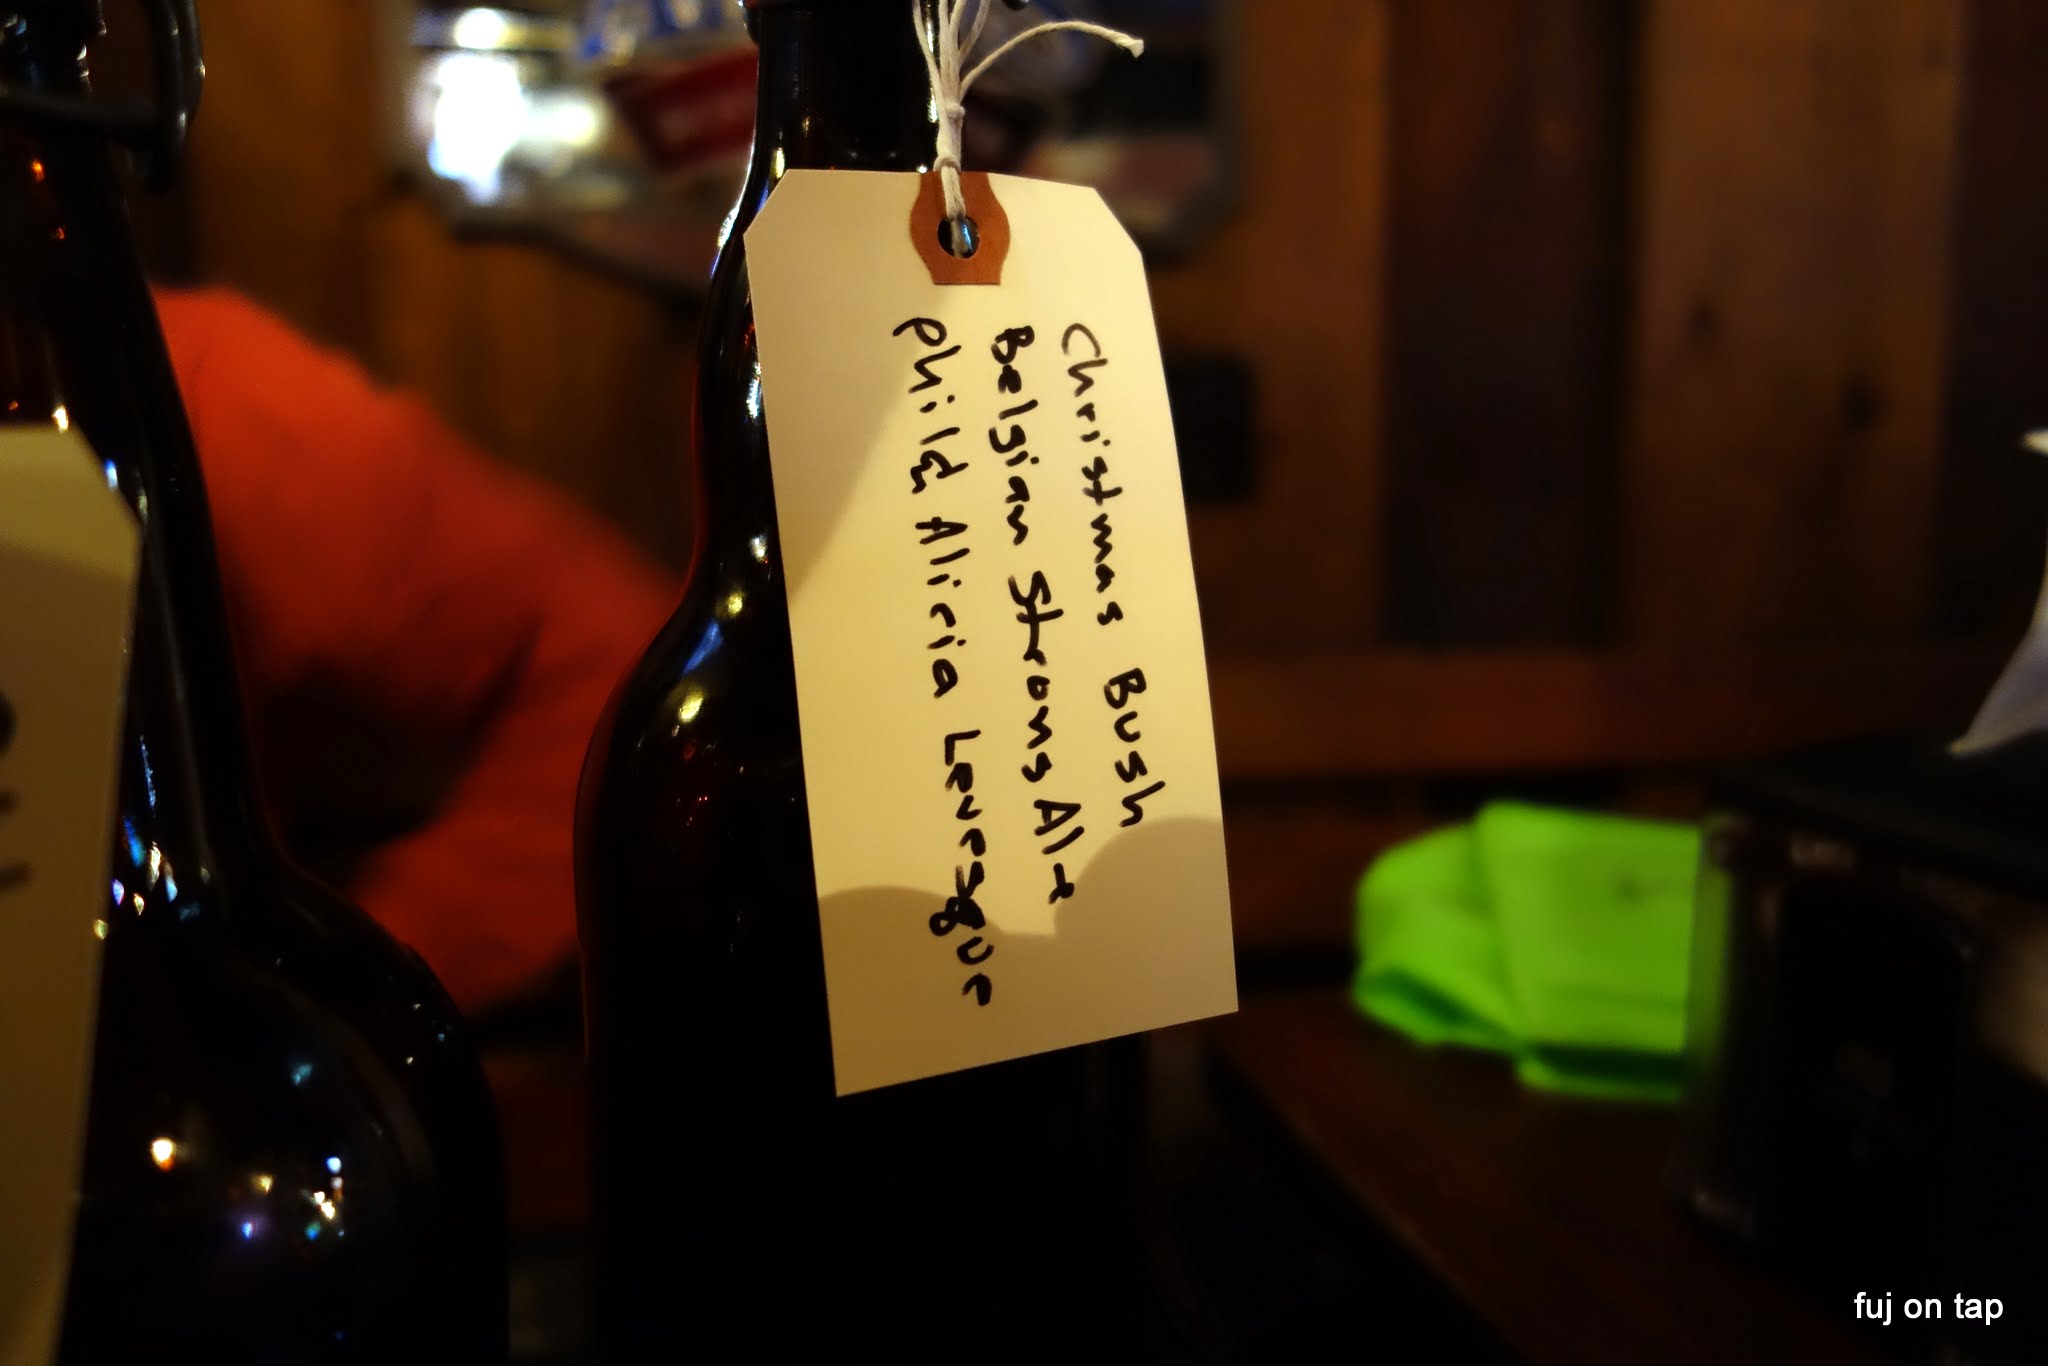 Christmas Bush
Belgian Strong Ale
Phil & Alicia Levesque
fuj on tap